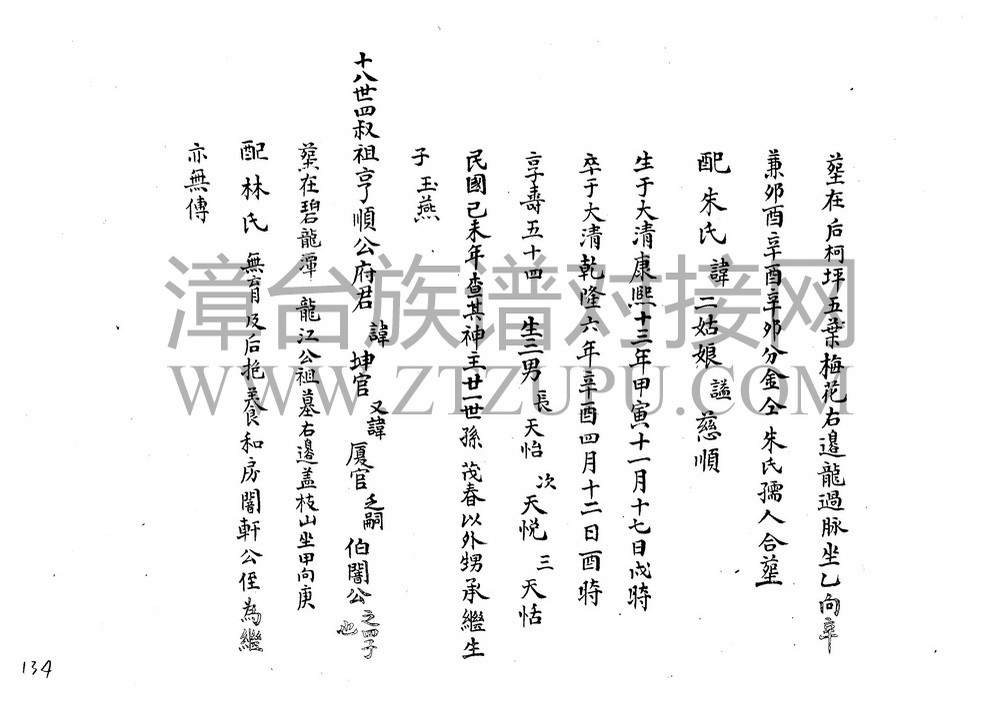 塟在后柯坪五葉梅花右邉龍過脉坐乙向辛
兼夘酉辛酉辛夘分金仝朱氏孺人合塟
配朱氏 諱二姑娘 謚慈順
生于大清康熙十三年甲寅十一月十七日戌時
卒于大清乾隆六年辛酉四月十二日酉時
享壽五十四 生三男 長天怡 次天悦 三天恬
民國己未年查其神主廿一世孫茂春以外甥承繼生
子玉燕
十八世四叔祖亨順公府君 諱坤官 又諱厦官 乏嗣 伯闇公之四子也
塟在碧龍潭龍江公祖墓右邉盖枝山坐甲向庚
配林氏 無育及后抱養和房闇軒公侄為繼
亦無傳
漳台族谱对接网
WWW.ZTZUPU.COM
134